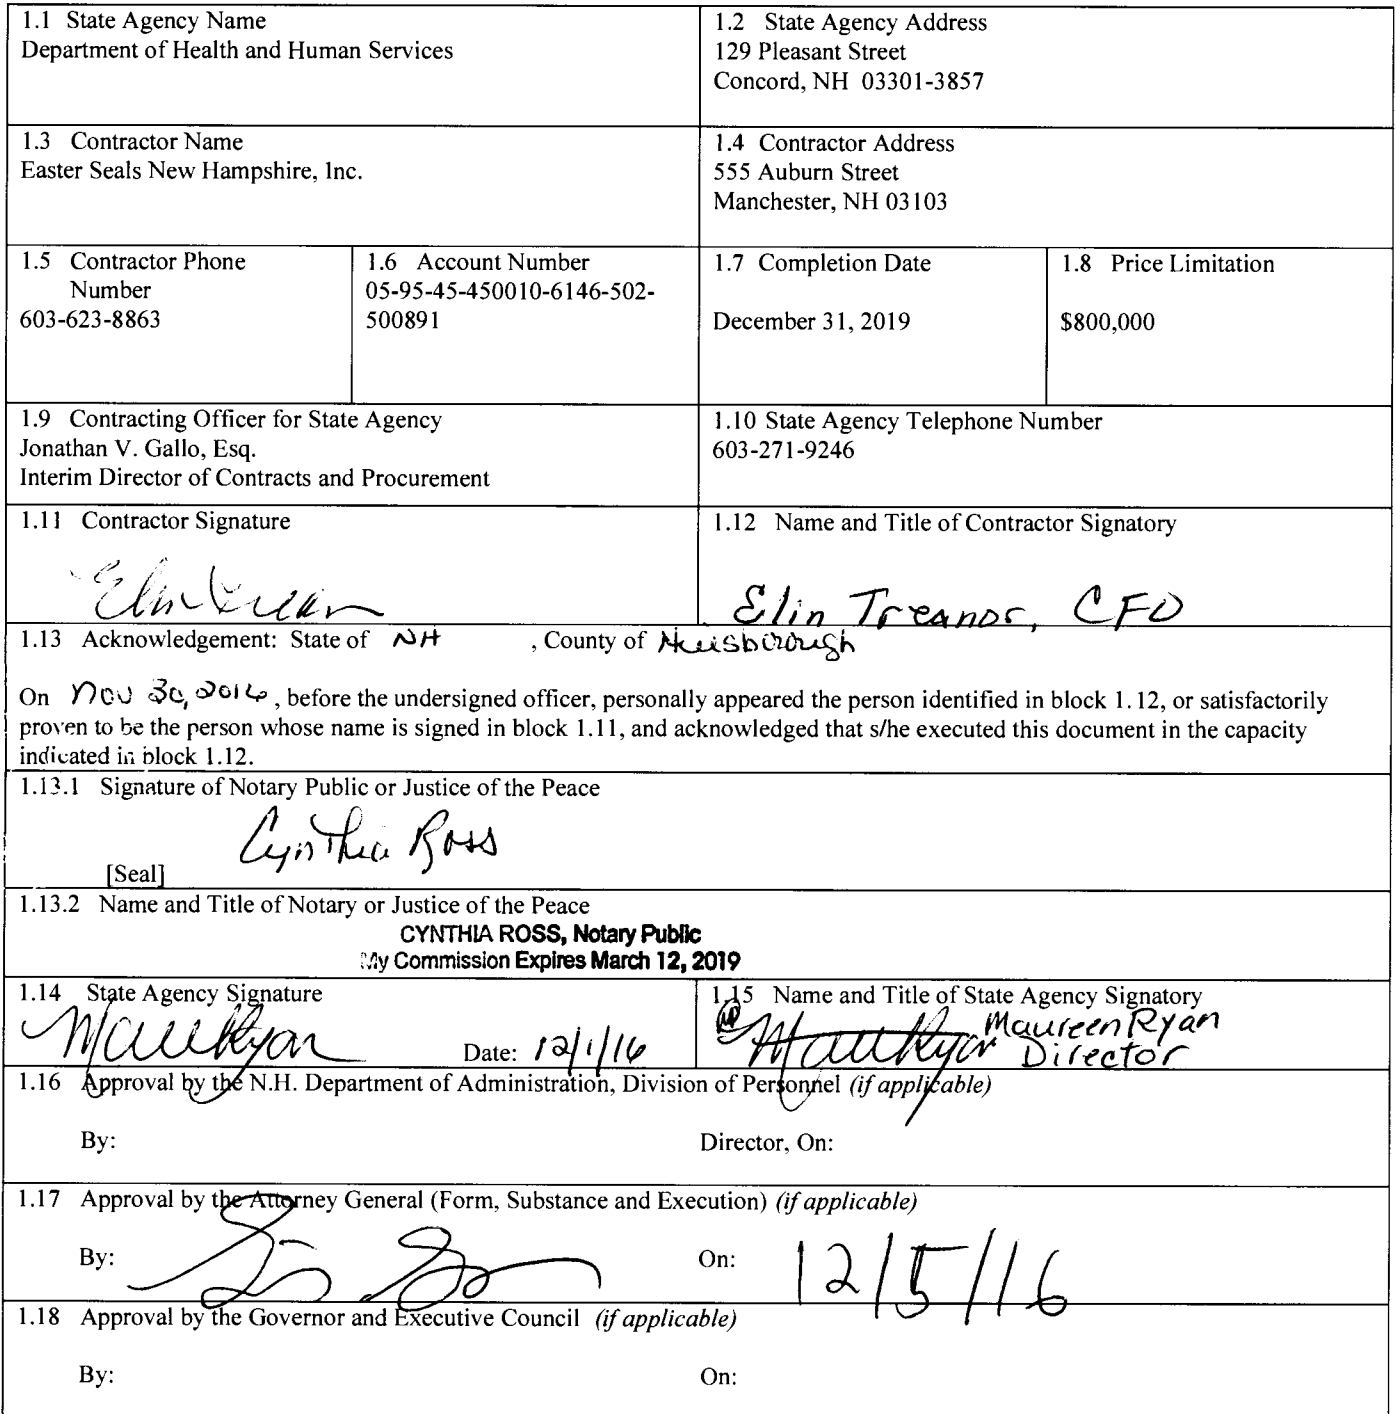 1.1 State Agency Name
Department of Health and Human Services
1.2 State Agency Address
129 Pleasant Street
Concord, NH 03301-3857
1.3 Contractor Name
Easter Seals New Hampshire, Inc.
1.4 Contractor Address
555 Auburn Street
Manchester, NH 03103
1.5 Contractor Phone
Number
603-623-8863
1.6 Account Number
05-95-45-450010-6146-502-
500891
1.7 Completion Date
December 31, 2019
1.8 Price Limitation
$800,000
1.9 Contracting Officer for State Agency
Jonathan V. Gallo, Esq.
Interim Director of Contracts and Procurement
1.10 State Agency Telephone Number
603-271-9246
1.11 Contractor Signature
1.12 Name and Title of Contractor Signatory
Elin Treanor, CFO
1.13 Acknowledgement: State of NH , County of
On Nov 30, 2016, before the undersigned officer, personally appeared the person identified in block 1.12, or satisfactorily
proven to be the person whose name is signed in block 1.11, and acknowledged that s/he executed this document in the capacity
indicated in block 1.12.
1.13.1 Signature of Notary Public or Justice of the Peace
Cynthia Ross
[Seal]
1.13.2 Name and Title of Notary or Justice of the Peace
CYNTHIA ROSS, Notary Public
My Commission Expires March 12, 2019
1.14 State Agency Signature
Date: 12/1/16
1.15 Name and Title of State Agency Signatory
Maureen Ryan
Director
1.16 Approval by the N.H. Department of Administration, Division of Personnel (if applicable)
By:
Director, On:
1.17 Approval by the Attorney General (Form, Substance and Execution) (if applicable)
By:
On: 12/5/16
1.18 Approval by the Governor and Executive Council (if applicable)
By:
On: